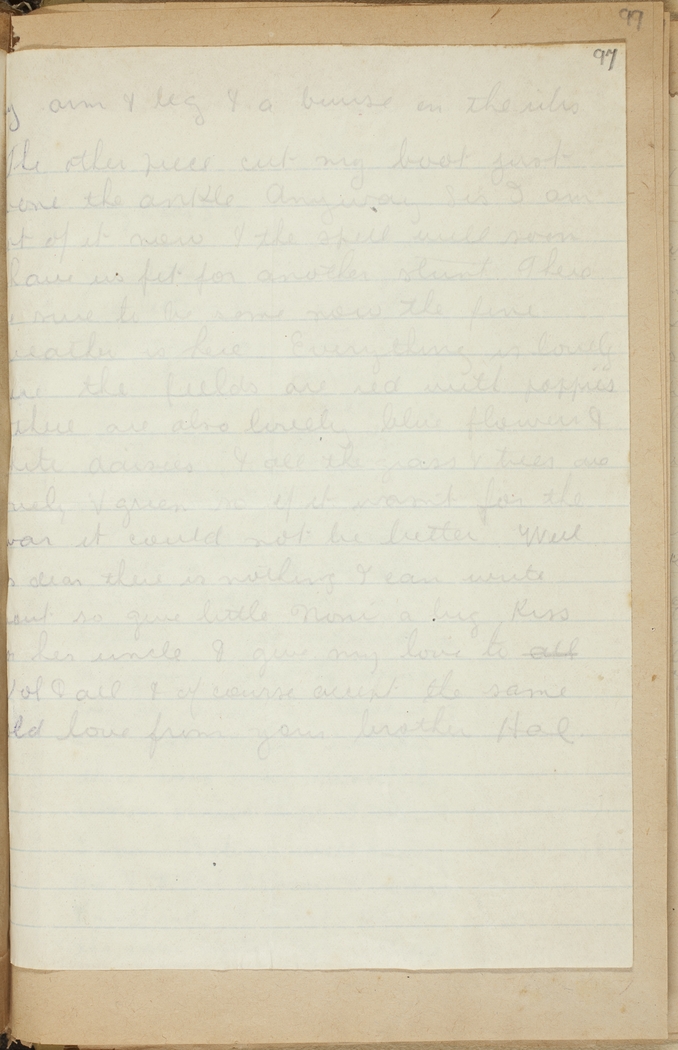 99
97
y arm & leg & a bruise on the ribs
the other piece cut my boot just
the ankle Anyway Sis I am
t of it now & the spell will soon
have us fit for another stunt There
sure to be some now the fine
eather is here Everything is lovely
the fields are red with poppies
there are also lovely blue flowers &
ite daisies & all the grass & trees are
vely & green so if it wasnt for the
war it could not be better Well
s dear there is nothing I can write
out so give little Noni a big Kiss
her uncle & give my love to all
& all & of course accept the same
ld love from your brother Hal.